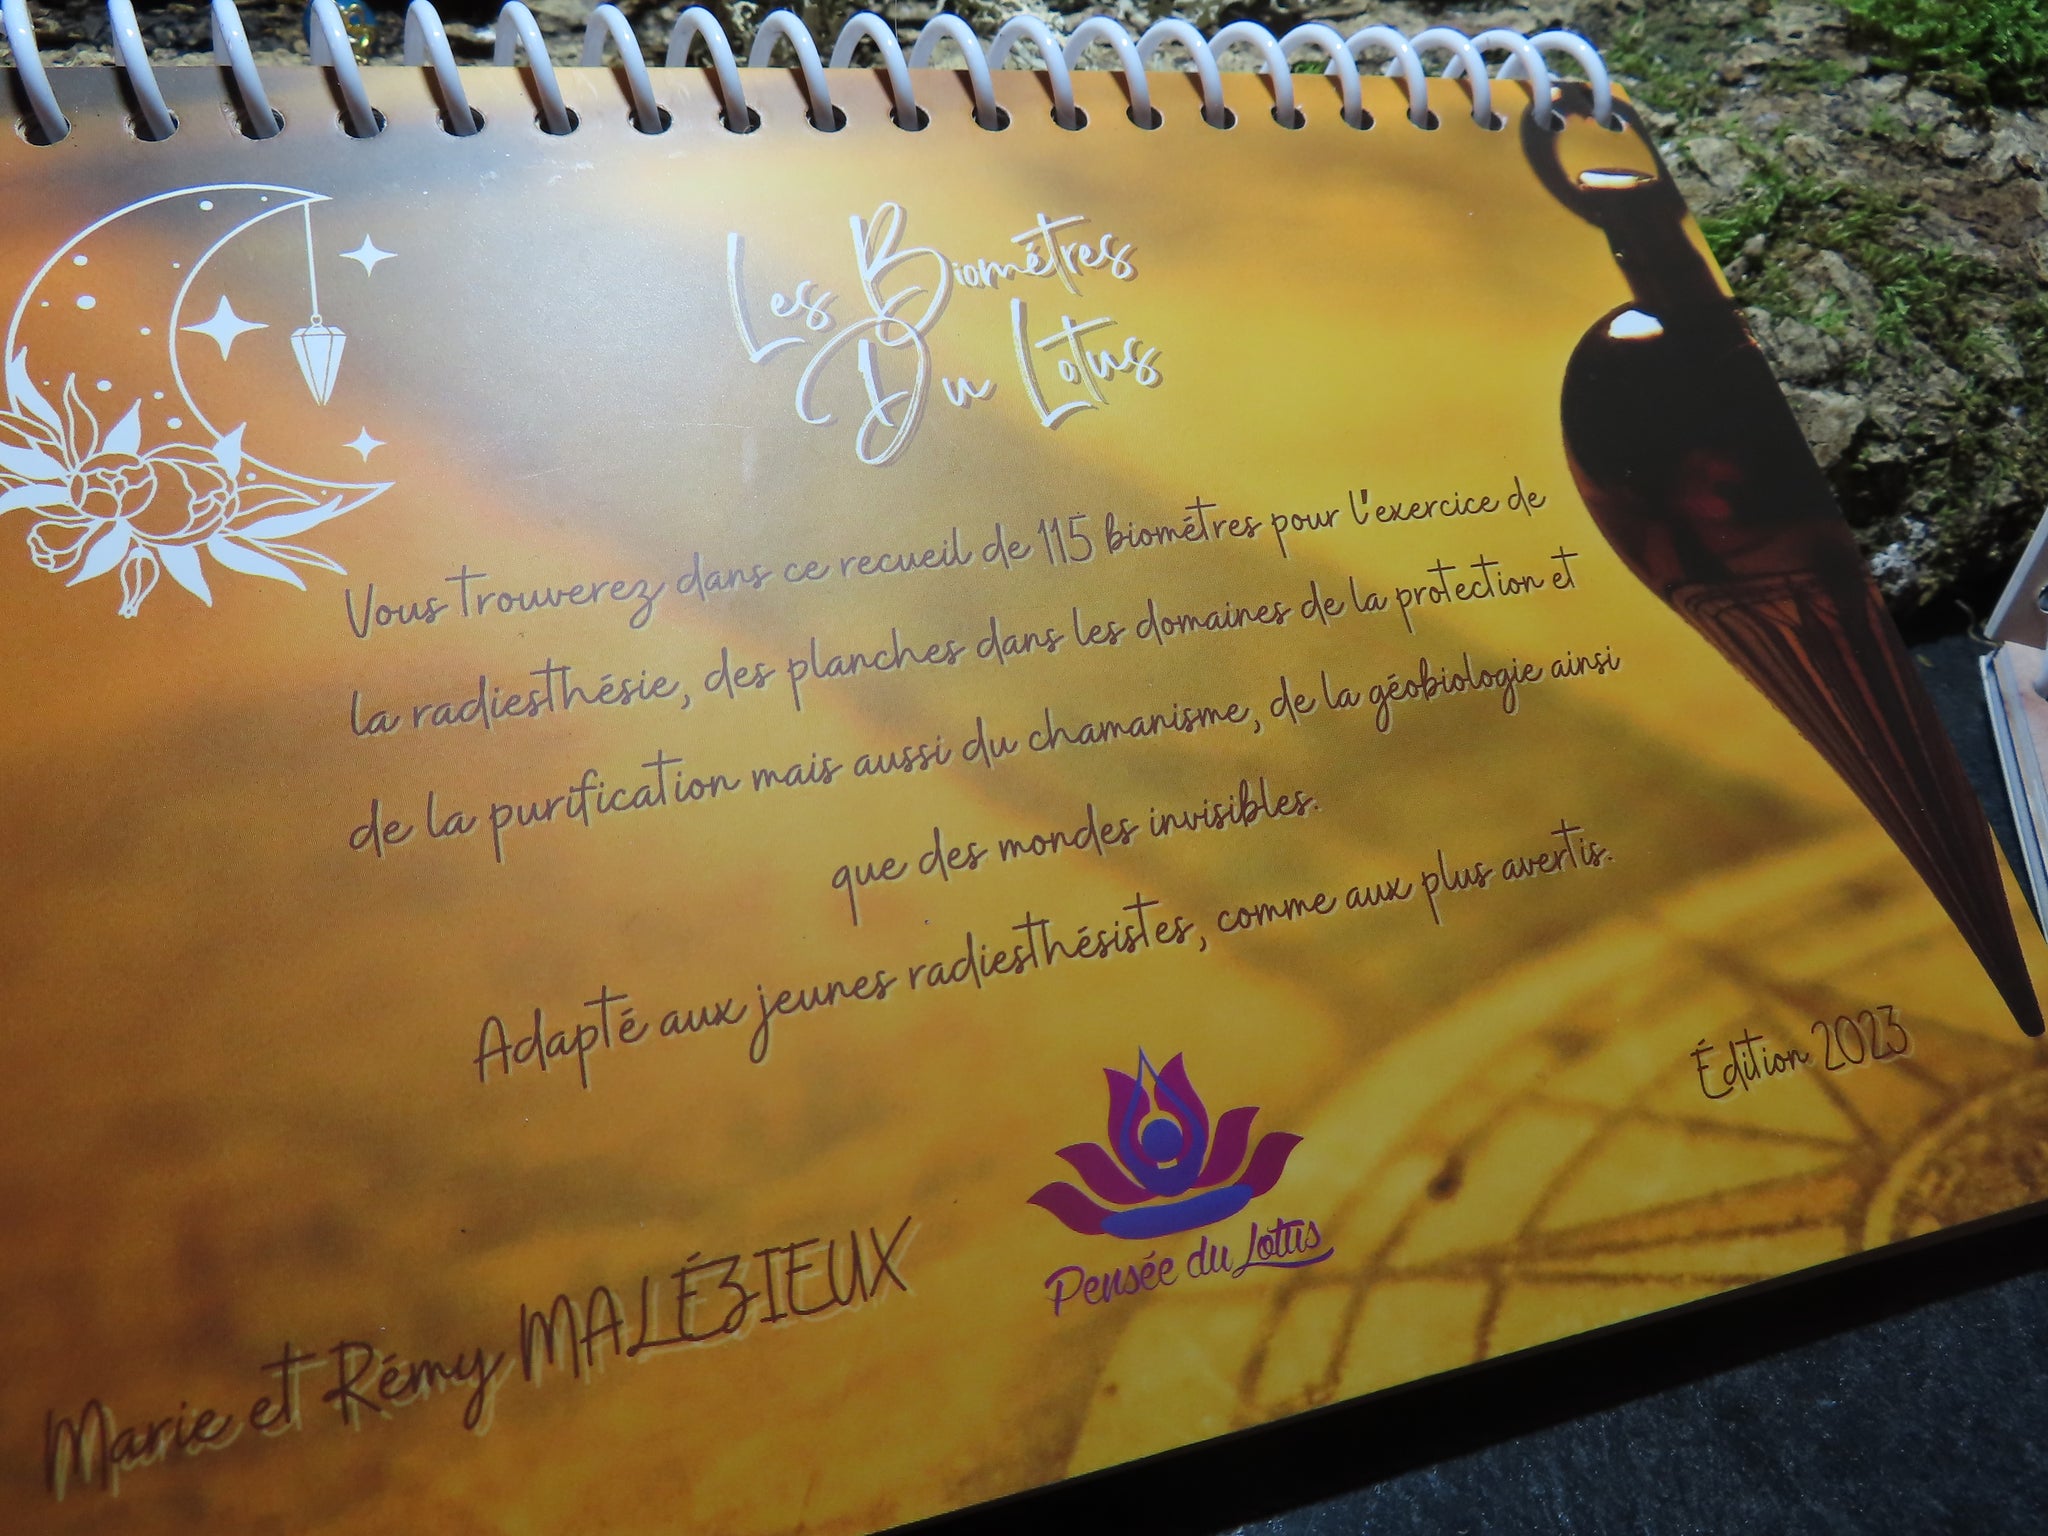 Les Biométres
Du Lotus
Vous trouverez dans ce recueil de 115 biométres pour l'exercice de
la radiesthésie, des planches dans les domaines de la protection et
de la purification mais aussi du chamanisme, de la géobiologie ainsi
que des mondes invisibles.
Adapté aux jeunes radiesthésistes, comme aux plus avertis.
Édition 2023
Pensée du Lotus
Marie et Rémy MALÉZIEUX